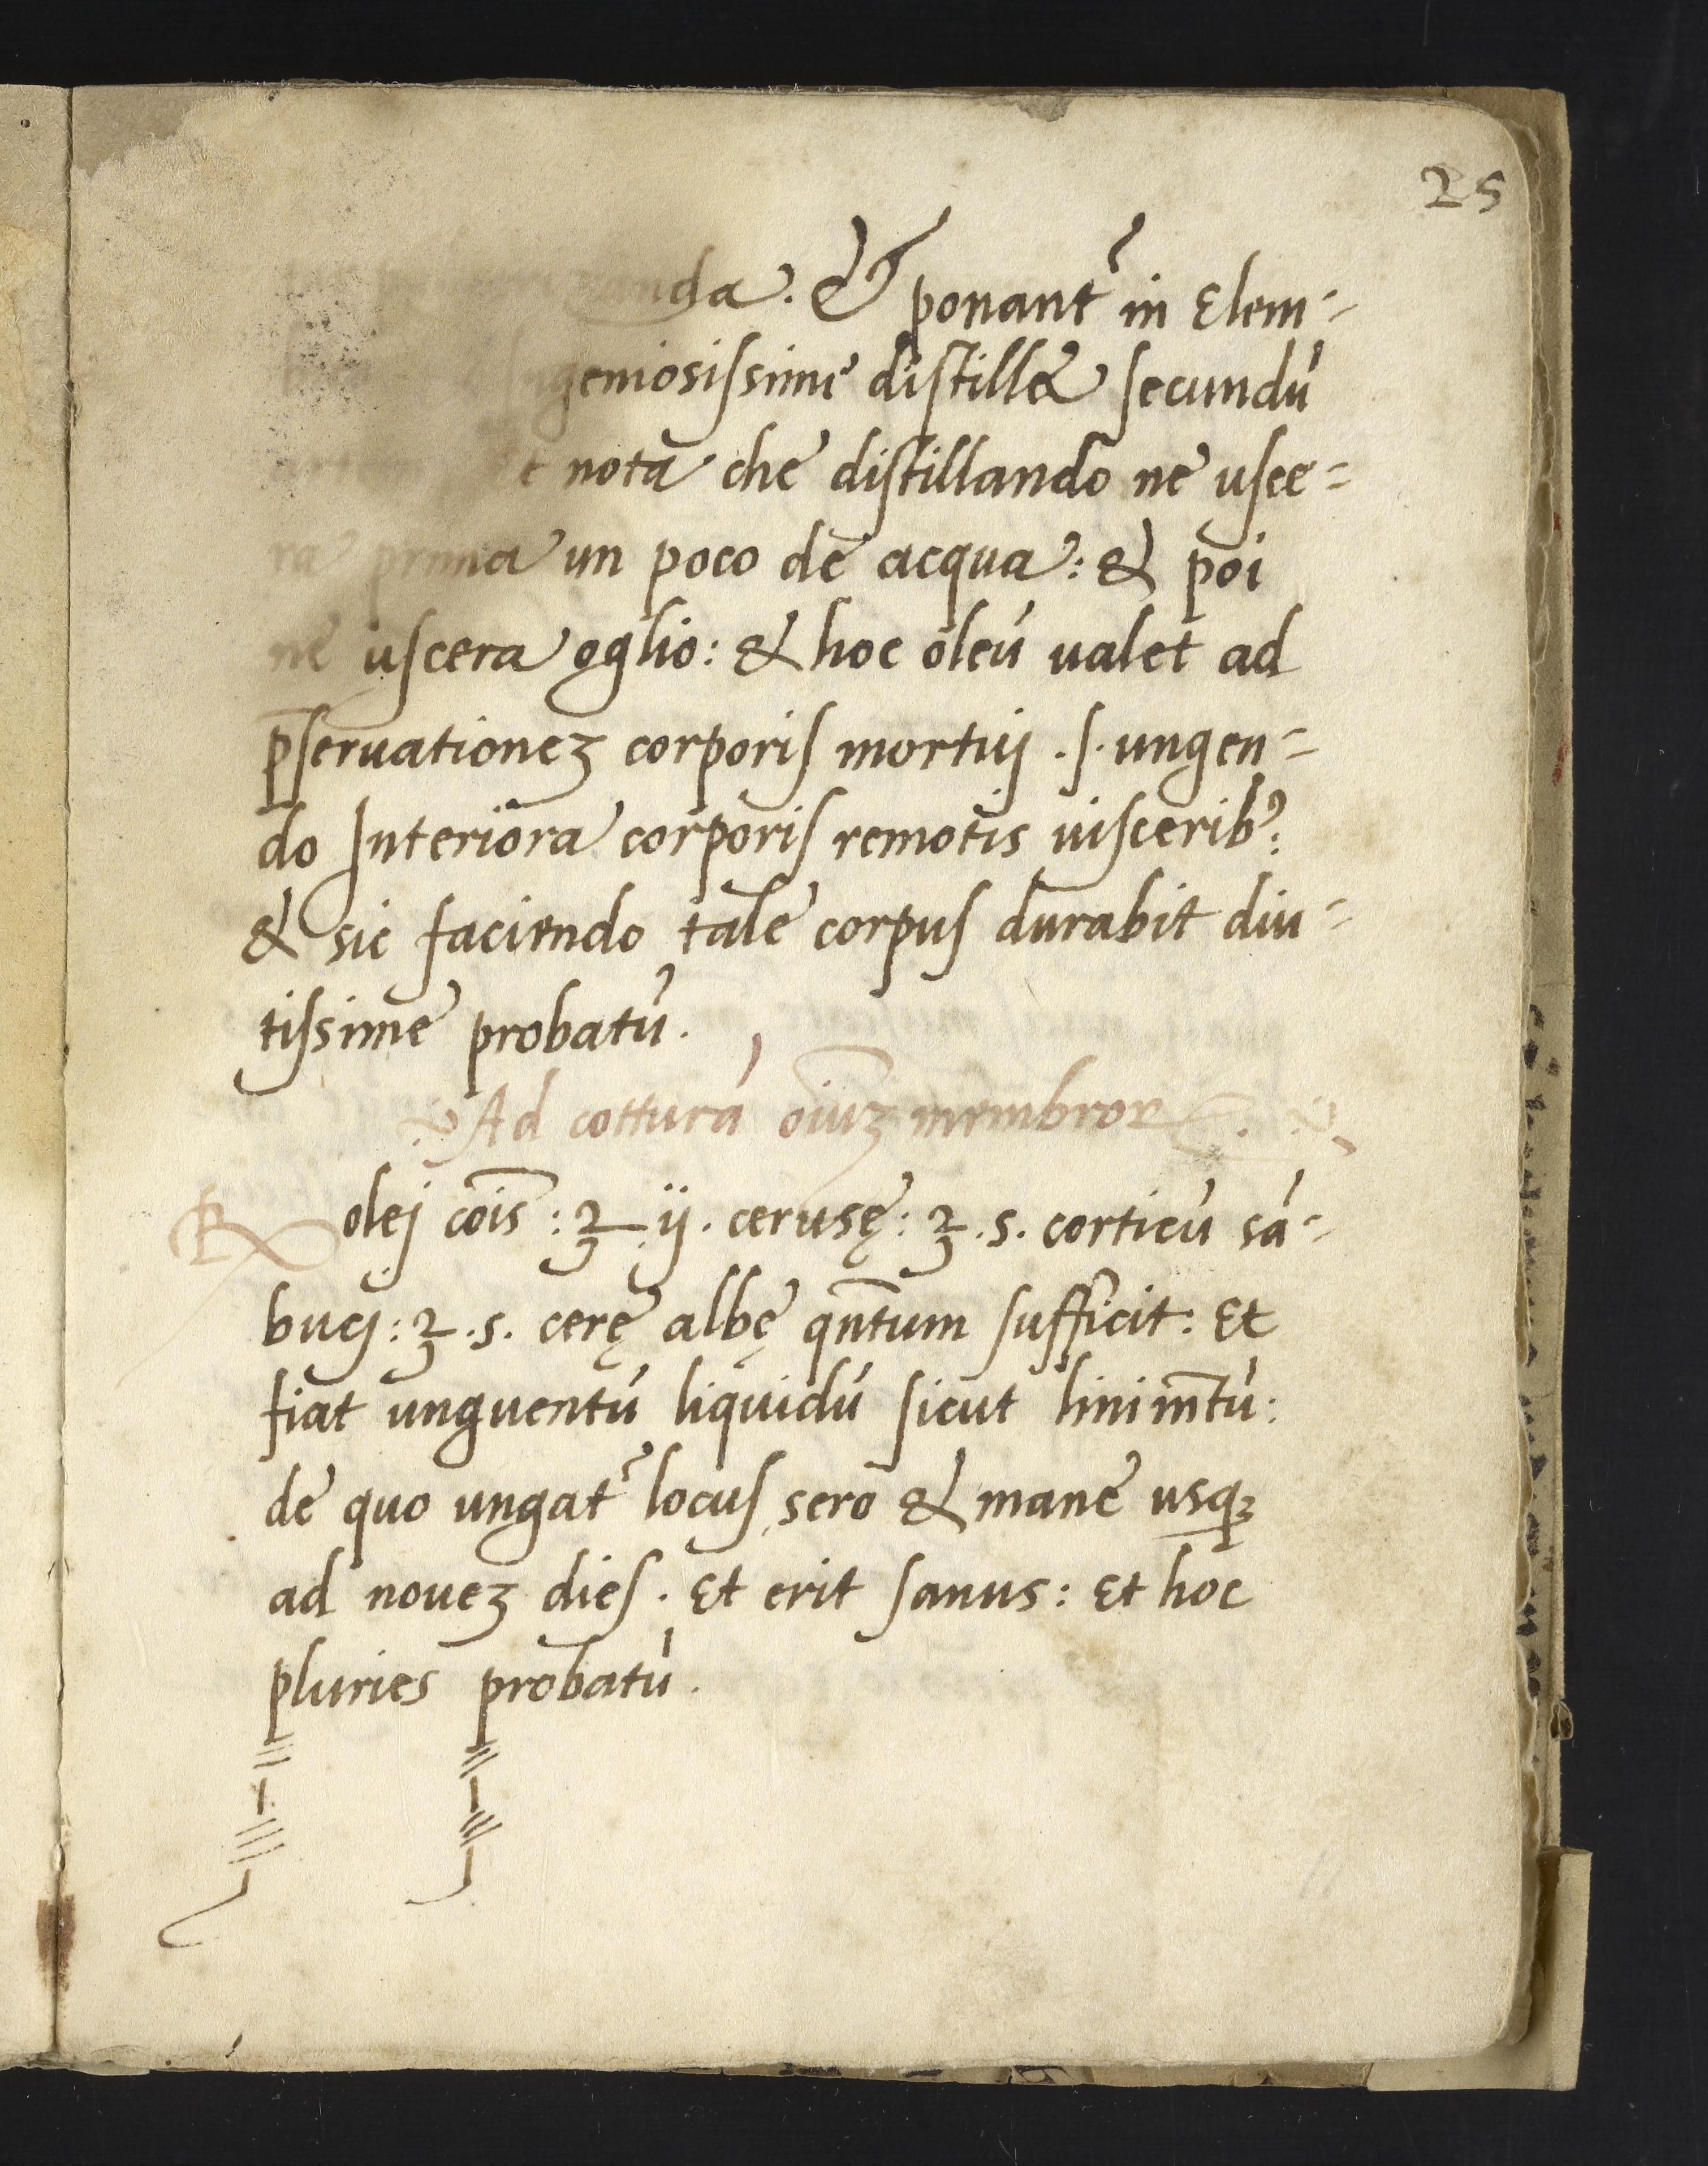 25
& ponant̉ in Elem-
distille secundú
et nota che distillando ne usce-
ra prima un poco de acqua: & poi
ne uscera oglio: & hoc oleú ualet ad
p̄seruationeʒ corporis mortuj .s. ungen-
do Interiora corporis remotis uisceribꝰ:
& sic faciendo tale corpus durabit diu-
tissime probatú.
Ad cotturá oiuʒ̄ membroꝝ.
℞ olej cōis: ℥ ij. cerusę: ℥ .s. corticú sá-
bucj: ℥ .s. cerę albę qn̄tum sufficit: Et
fiat unguentú liquidú sicut linim̄tú:
de quo ungat̉ locus sero & mane usqꝫ
ad noueʒ dies. Et erit sanus: Et hoc
pluries probatú.